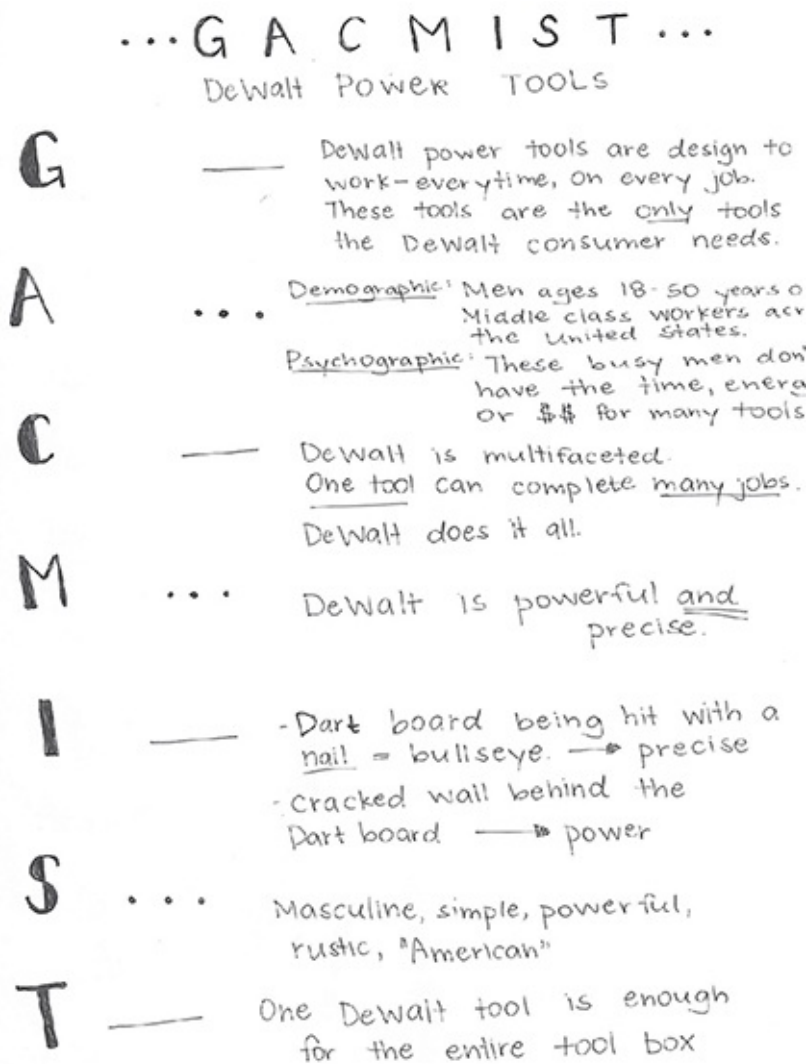 ...G A C M I S T...
DeWalt Power Tools
G — DeWalt power tools are design to
work-everytime, on every job.
These tools are the only tools
the DeWalt consumer needs.
A ... Demographic: Men ages 18-50 years o
Middle class workers acr
the United States.
Psychographic: These busy men don'
have the time, energ
or $$ for many tools
C — DeWalt is multifaceted.
One tool can complete many jobs.
DeWalt does it all.
M ... DeWalt is powerful and
precise.
I — - Dart board being hit with a
nail = bullseye. → precise
- cracked wall behind the
Dart board → power
S ... Masculine, simple, powerful,
rustic, "American"
T — One DeWalt tool is enough
for the entire tool box